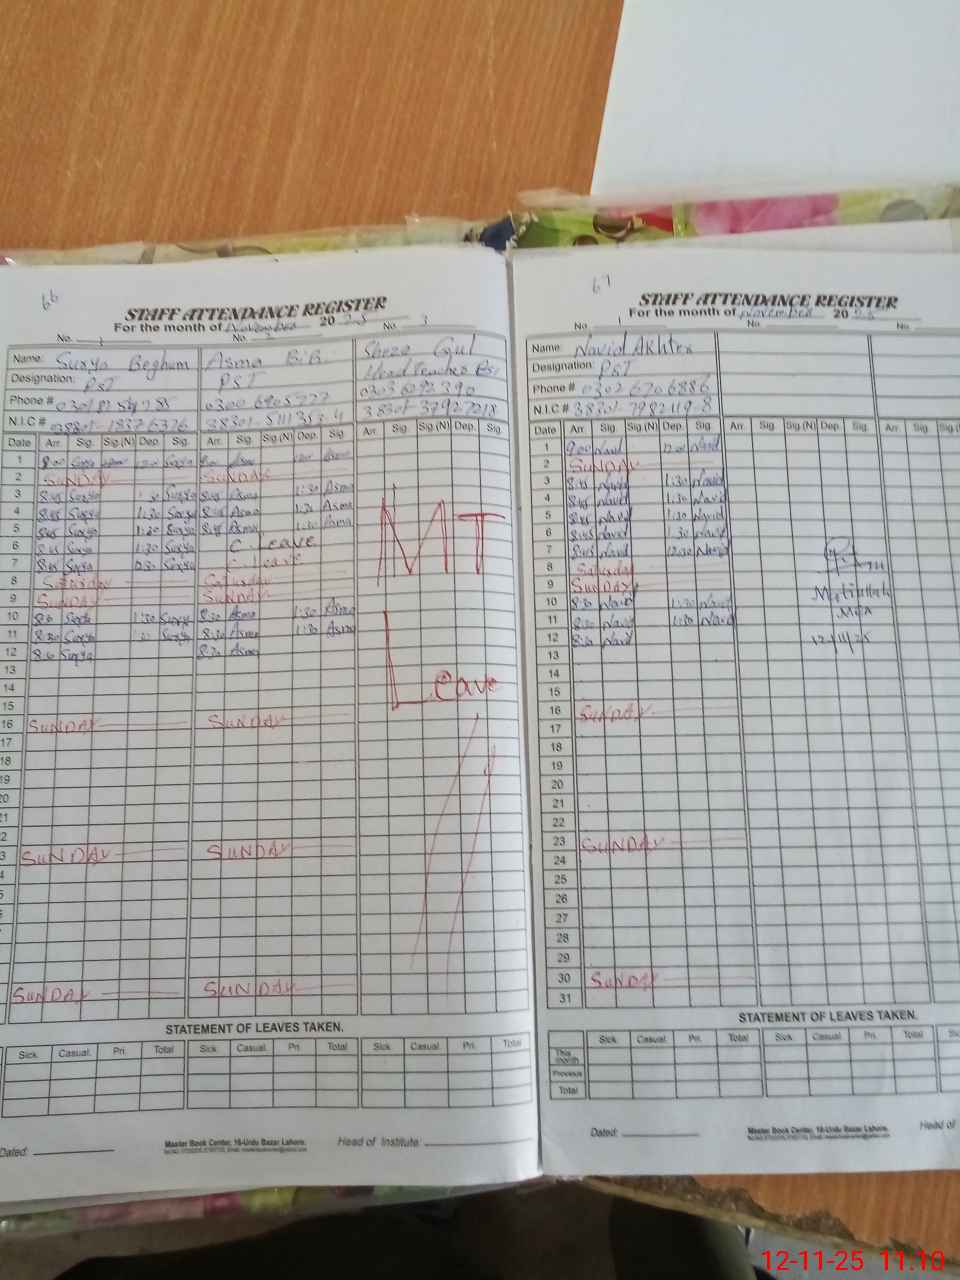 66
STAFF ATTENDANCE REGISTER
For the month of November 2025
No. 1 No. 2 No. 3
Name: Surya Beghum Asma BiBi Sheza Gul
Designation: PST PST Head Teacher
Phone # 0300 6905777 0303
N.I.C #
Date Arr. Sig. Sig.(N) Dep. Sig. Arr. Sig. Sig.(N) Dep. Sig. Arr. Sig. Sig.(N) Dep. Sig.
1 8:00 Surya Surya Asma Asma
2 SUNDAY SUNDAY
3 8:45 Surya 1:30 Surya 8:45 Asma 1:30 Asma
4 8:45 Surya 1:30 Surya 8:45 Asma 1:30 Asma
5 8:45 Surya 1:30 Surya 8:45 Asma 1:30 Asma
6 8:45 Surya 1:30 Surya C. Leave
7 8:45 Surya 12:30 Surya C. Leave
8 Saturday Saturday
9 SUNDAY SUNDAY
10 8:30 Surya 1:30 Surya 8:30 Asma 1:30 Asma
11 8:30 Surya 1:30 Surya 8:30 Asma 1:30 Asma
12 8:30 Surya 8:30 Asma
MT
Leave
13
14
15
16 SUNDAY SUNDAY
17
18
19
20
21
2
3 SUNDAY SUNDAY
SUNDAY SUNDAY
STATEMENT OF LEAVES TAKEN.
Sick. Casual. Pri. Total Sick. Casual. Pri. Total Sick. Casual. Pri. Total
Master Book Center, 16-Urdu Bazar Lahore.
Dated: Head of Institute:
67
STAFF ATTENDANCE REGISTER
For the month of November 2025
No. 1 No. No.
Name: Navid Akhter
Designation: PST
Phone # 0302 6206886
N.I.C # 38301-7982119-8
Date Arr. Sig. Sig.(N) Dep. Sig. Arr. Sig. Sig.(N) Dep. Sig. Arr. Sig.
1 9:00 Navid 12:00 Navid
2 SUNDAY
3 8:45 Navid 1:30 Navid
4 8:45 Navid 1:30 Navid
5 8:45 Navid 1:30 Navid
6 8:45 Navid 1:30 Navid
7 8:45 Navid 12:30 Navid
8 Saturday
9 SUNDAY
10 8:30 Navid 1:30 Navid Matiullah
11 8:30 Navid 1:30 Navid MEA
12 8:30 Navid 12/11/25
13
14
15
16 SUNDAY
17
18
19
20
21
22
23 SUNDAY
24
25
26
27
28
29
30 SUNDAY
31
STATEMENT OF LEAVES TAKEN.
Sick. Casual. Pri. Total Sick. Casual. Pri. Total
This month
Previous
Total
Dated: Master Book Center, 16-Urdu Bazar Lahore. Head of
12-11-25 11.10